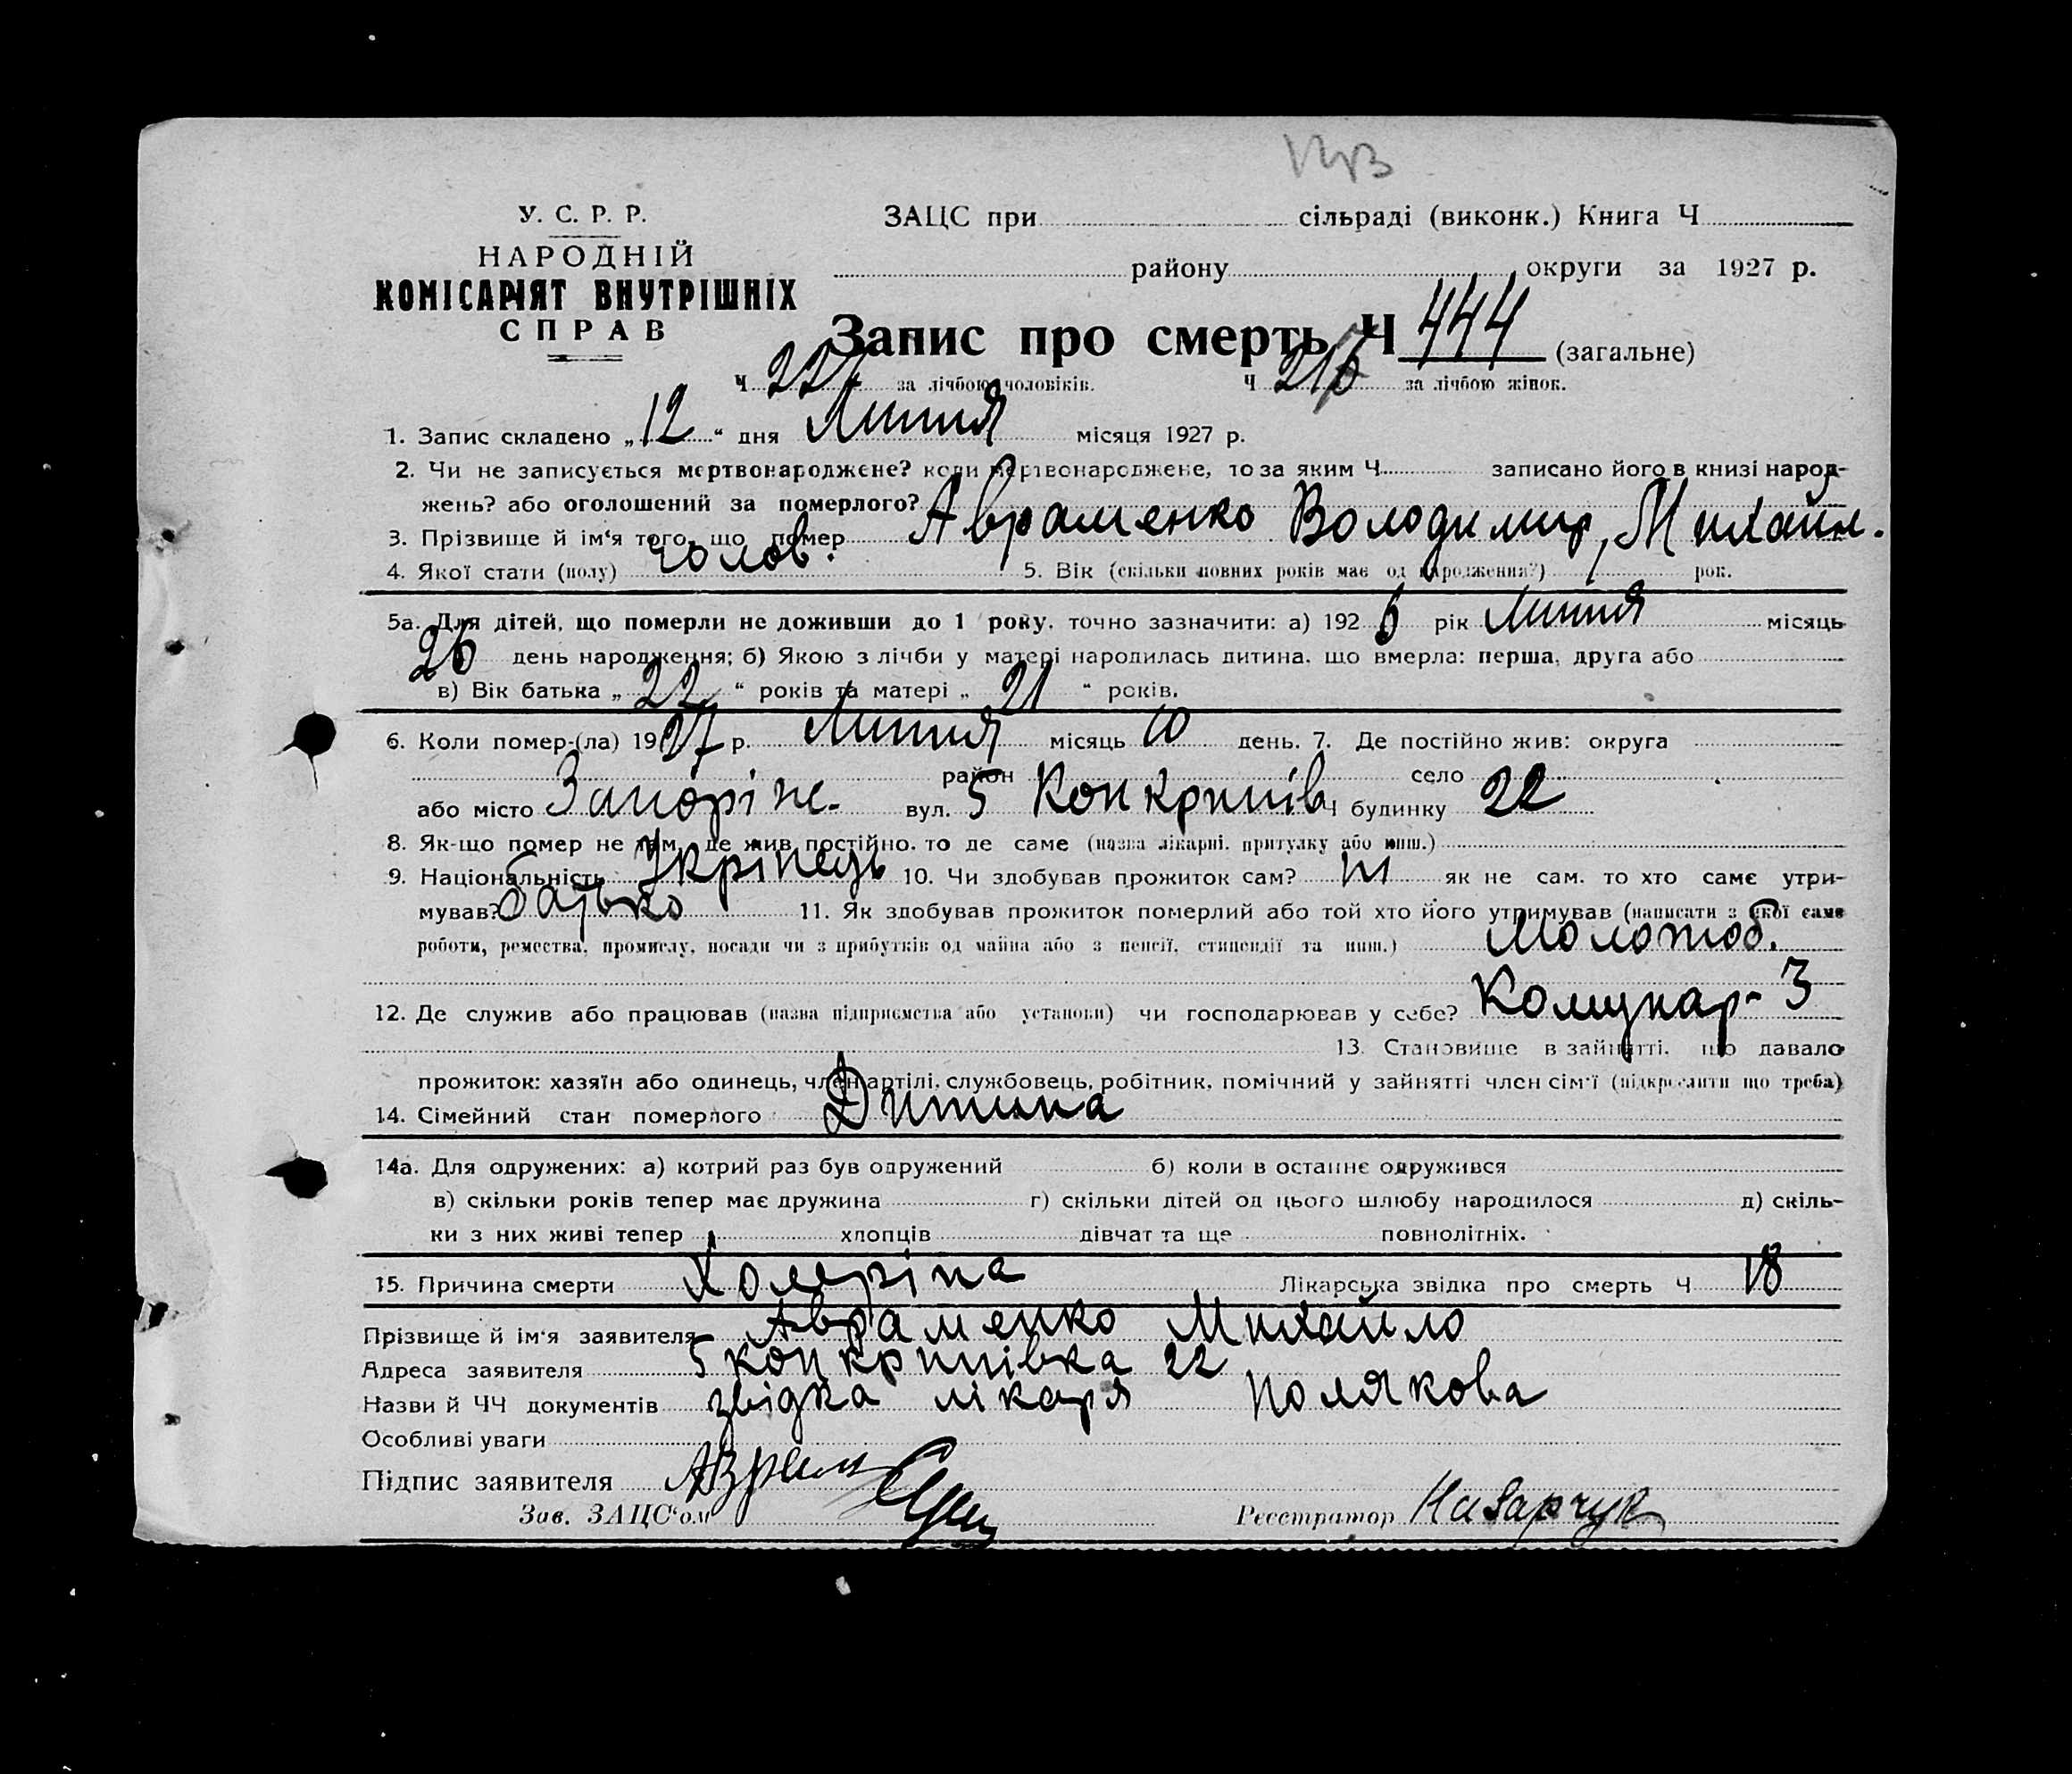 У. С. Р. Р.
НАРОДНІЙ
КОМІСАРІЯТ ВНУТРІШНІХ
СПРАВ
ЗАЦС при сільраді (виконк.) Книга Ч
району округи за 1927 р.
Запис про смерть Ч 444 (загальне)
Ч 227 за лічбою чоловіків. Ч за лічбою жінок.
1. Запис складено „ 12 “ дня Липня місяця 1927 р.
2. Чи не записується мертвонароджене? коли мертвонароджене, то за яким Ч записано його в книзі народ-
жень? або оголошений за померлого?
3. Прізвище й ім'я того, що помер Авраменко Володимир, Михайл.
4. Якої стати (полу) чолов. 5. Вік (скільки повних років має од народження?) рок.
5а. Для дітей, що померли не доживши до 1 року, точно зазначити: а) 192 6 рік Липня місяць
26 день народження; б) Якою з лічби у матері народилась дитина, що вмерла: перша, друга або
в) Вік батька „ 22 “ років та матері „ 21 “ років.
6. Коли помер-(ла) 1927 р. Липня місяць 10 день. 7. Де постійно жив: округа
район село
або місто Запоріж. вул. 5 Копкрипів Ч будинку 22
8. Як-що помер не там, де жив постійно, то де саме (назва лікарні, притулку або инш.)
9. Національність Укрінець 10. Чи здобував прожиток сам? ні як не сам, то хто саме утри-
мував? батько 11. Як здобував прожиток померлий або той хто його утримував (написати з якої саме
роботи, ремества, промислу, посади чи з прибутків од майна або з пенсії, стипендії та инш.) Молотоб.
12. Де служив або працював (назва підприємства або установи) чи господарював у себе? Комунар- З
13. Становище в зайнятті, що давало
прожиток: хазяїн або одинець, член артілі, службовець, робітник, помічний у зайнятті член сім'ї (підкреслити що треба)
14. Сімейний стан померлого Дитина
14а. Для одружених: а) котрий раз був одружений б) коли в останнє одружився
в) скільки років тепер має дружина г) скільки дітей од цього шлюбу народилося д) скіль-
ки з них живі тепер хлопців дівчат та ще повнолітніх.
15. Причина смерти Холеріна Лікарська звідка про смерть Ч 18
Прізвище й ім'я заявителя Авраменко Михайло
Адреса заявителя 5 копкрипівка 22
Назви й ЧЧ документів звідка лікаря Полякова
Особливі уваги
Підпис заявителя Аврам
Зав. ЗАЦС'ом Реєстратор Назарчук